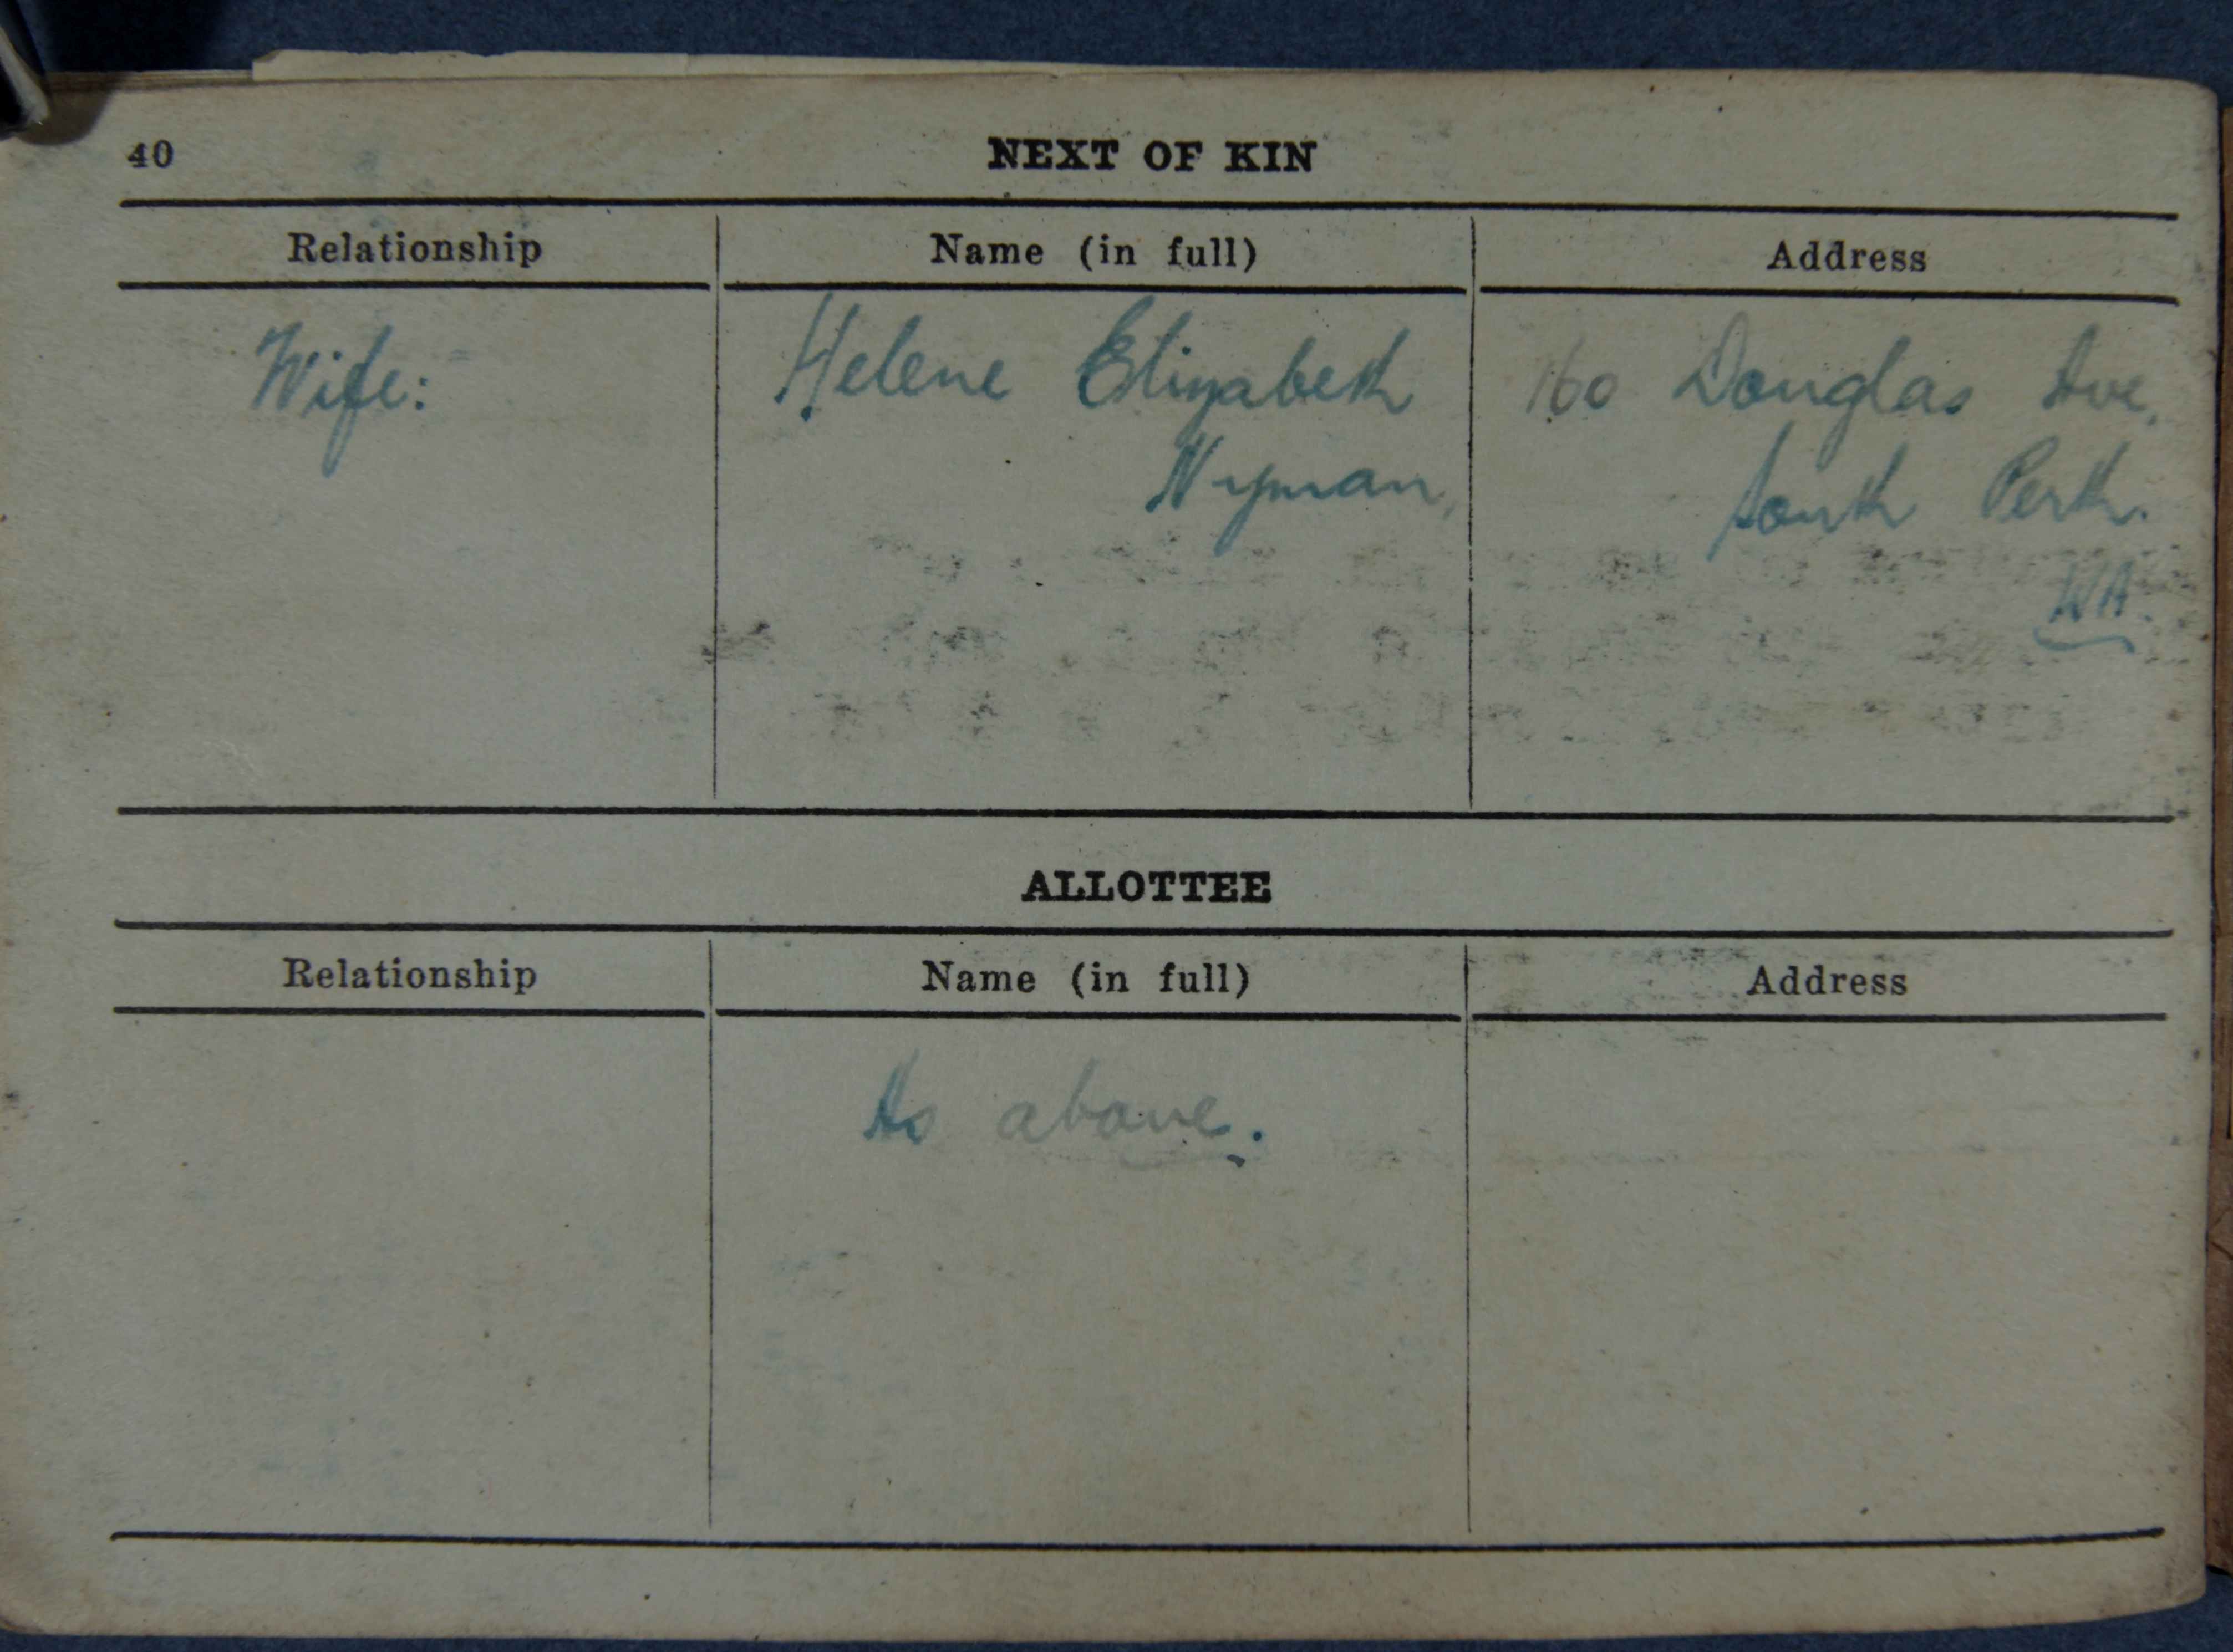 40 NEXT OF KIN
Relationship Name (in full) Address
Wife: Helene Elizabeth 160 Douglas Ave,
Nyman, South Perth.
WA.
ALLOTTEE
Relationship Name (in full) Address
As above.